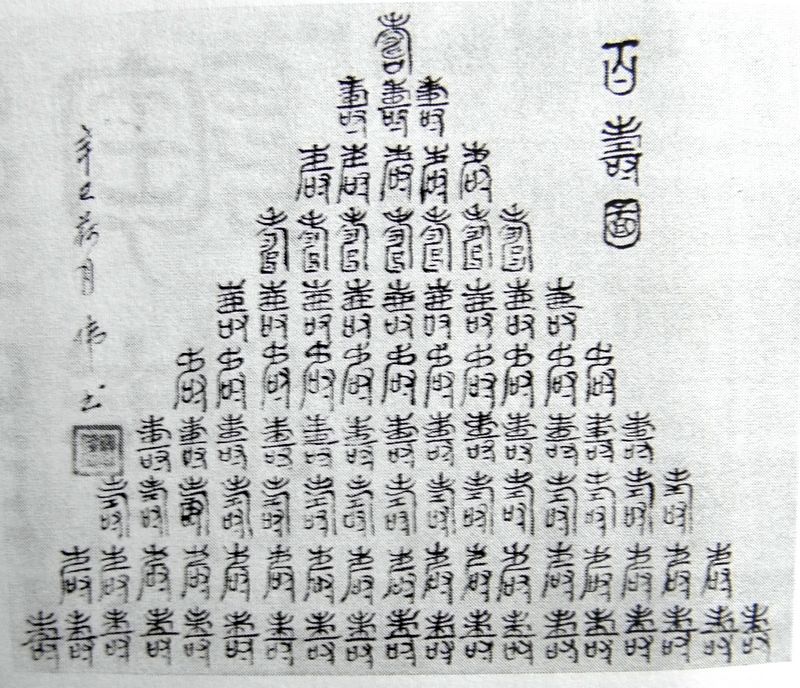 百壽圖
壽
壽壽壽
壽壽壽壽壽
壽壽壽壽壽壽壽
壽壽壽壽壽壽壽壽壽
壽壽壽壽壽壽壽壽壽壽壽
壽壽壽壽壽壽壽壽壽壽壽壽壽
壽壽壽壽壽壽壽壽壽壽壽壽壽壽壽
壽壽壽壽壽壽壽壽壽壽壽壽壽壽壽壽壽
壽壽壽壽壽壽壽壽壽壽壽壽壽壽壽壽壽壽壽
辛巳月偉书